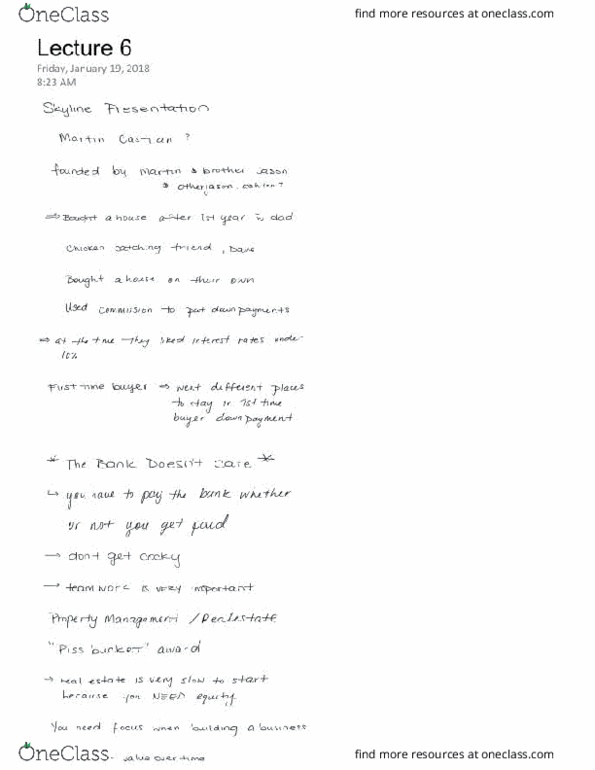 OneClass
find more resources at oneclass.com
Lecture 6
Friday, January 19, 2018
8:23 AM
Skyline Presentation
Martin ?
founded by Martin & brother Jason
& other jason. ?
⇒ Bought a house after 1st year w dad
Chicken catching friend, Dave
Bought a house on their own
Used commission to put down payments
⇒ at the time they liked interest rates under
10%
First time buyer ⇒ went different places
to stay 1st time
buyer down payment
* The Bank Doesn't care *
↳ you have to pay the bank whether
or not you get paid
→ don't get cocky
→ team work is very important
Property Management / Real Estate
"Piss bucket" award
→ real estate is very slow to start
because you NEED equity
You need focus when building a business
- value over time
OneClass
find more resources at oneclass.com